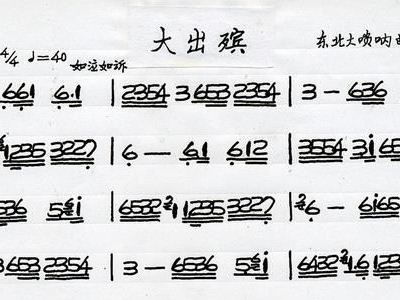 大出殡
4/4 ♩=40 如泣如诉 东北大唢呐曲
661 6.1 | 2354 3 653 2354 | 3 — 636
1235 3227 | 6 — 61 612 | 3554 3i 65
536 5 i | 6532 1 1235 3227 | 6 — 6i65
3 653 2354 | 3 — 6536 5 i | 6432 1.6 123